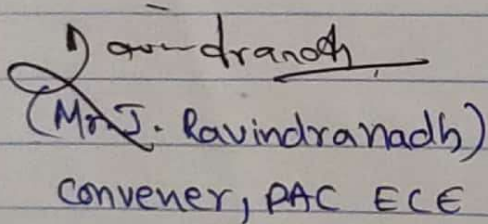 Ravindranadh
(Mr J. Ravindranadh)
Convener, PAC ECE